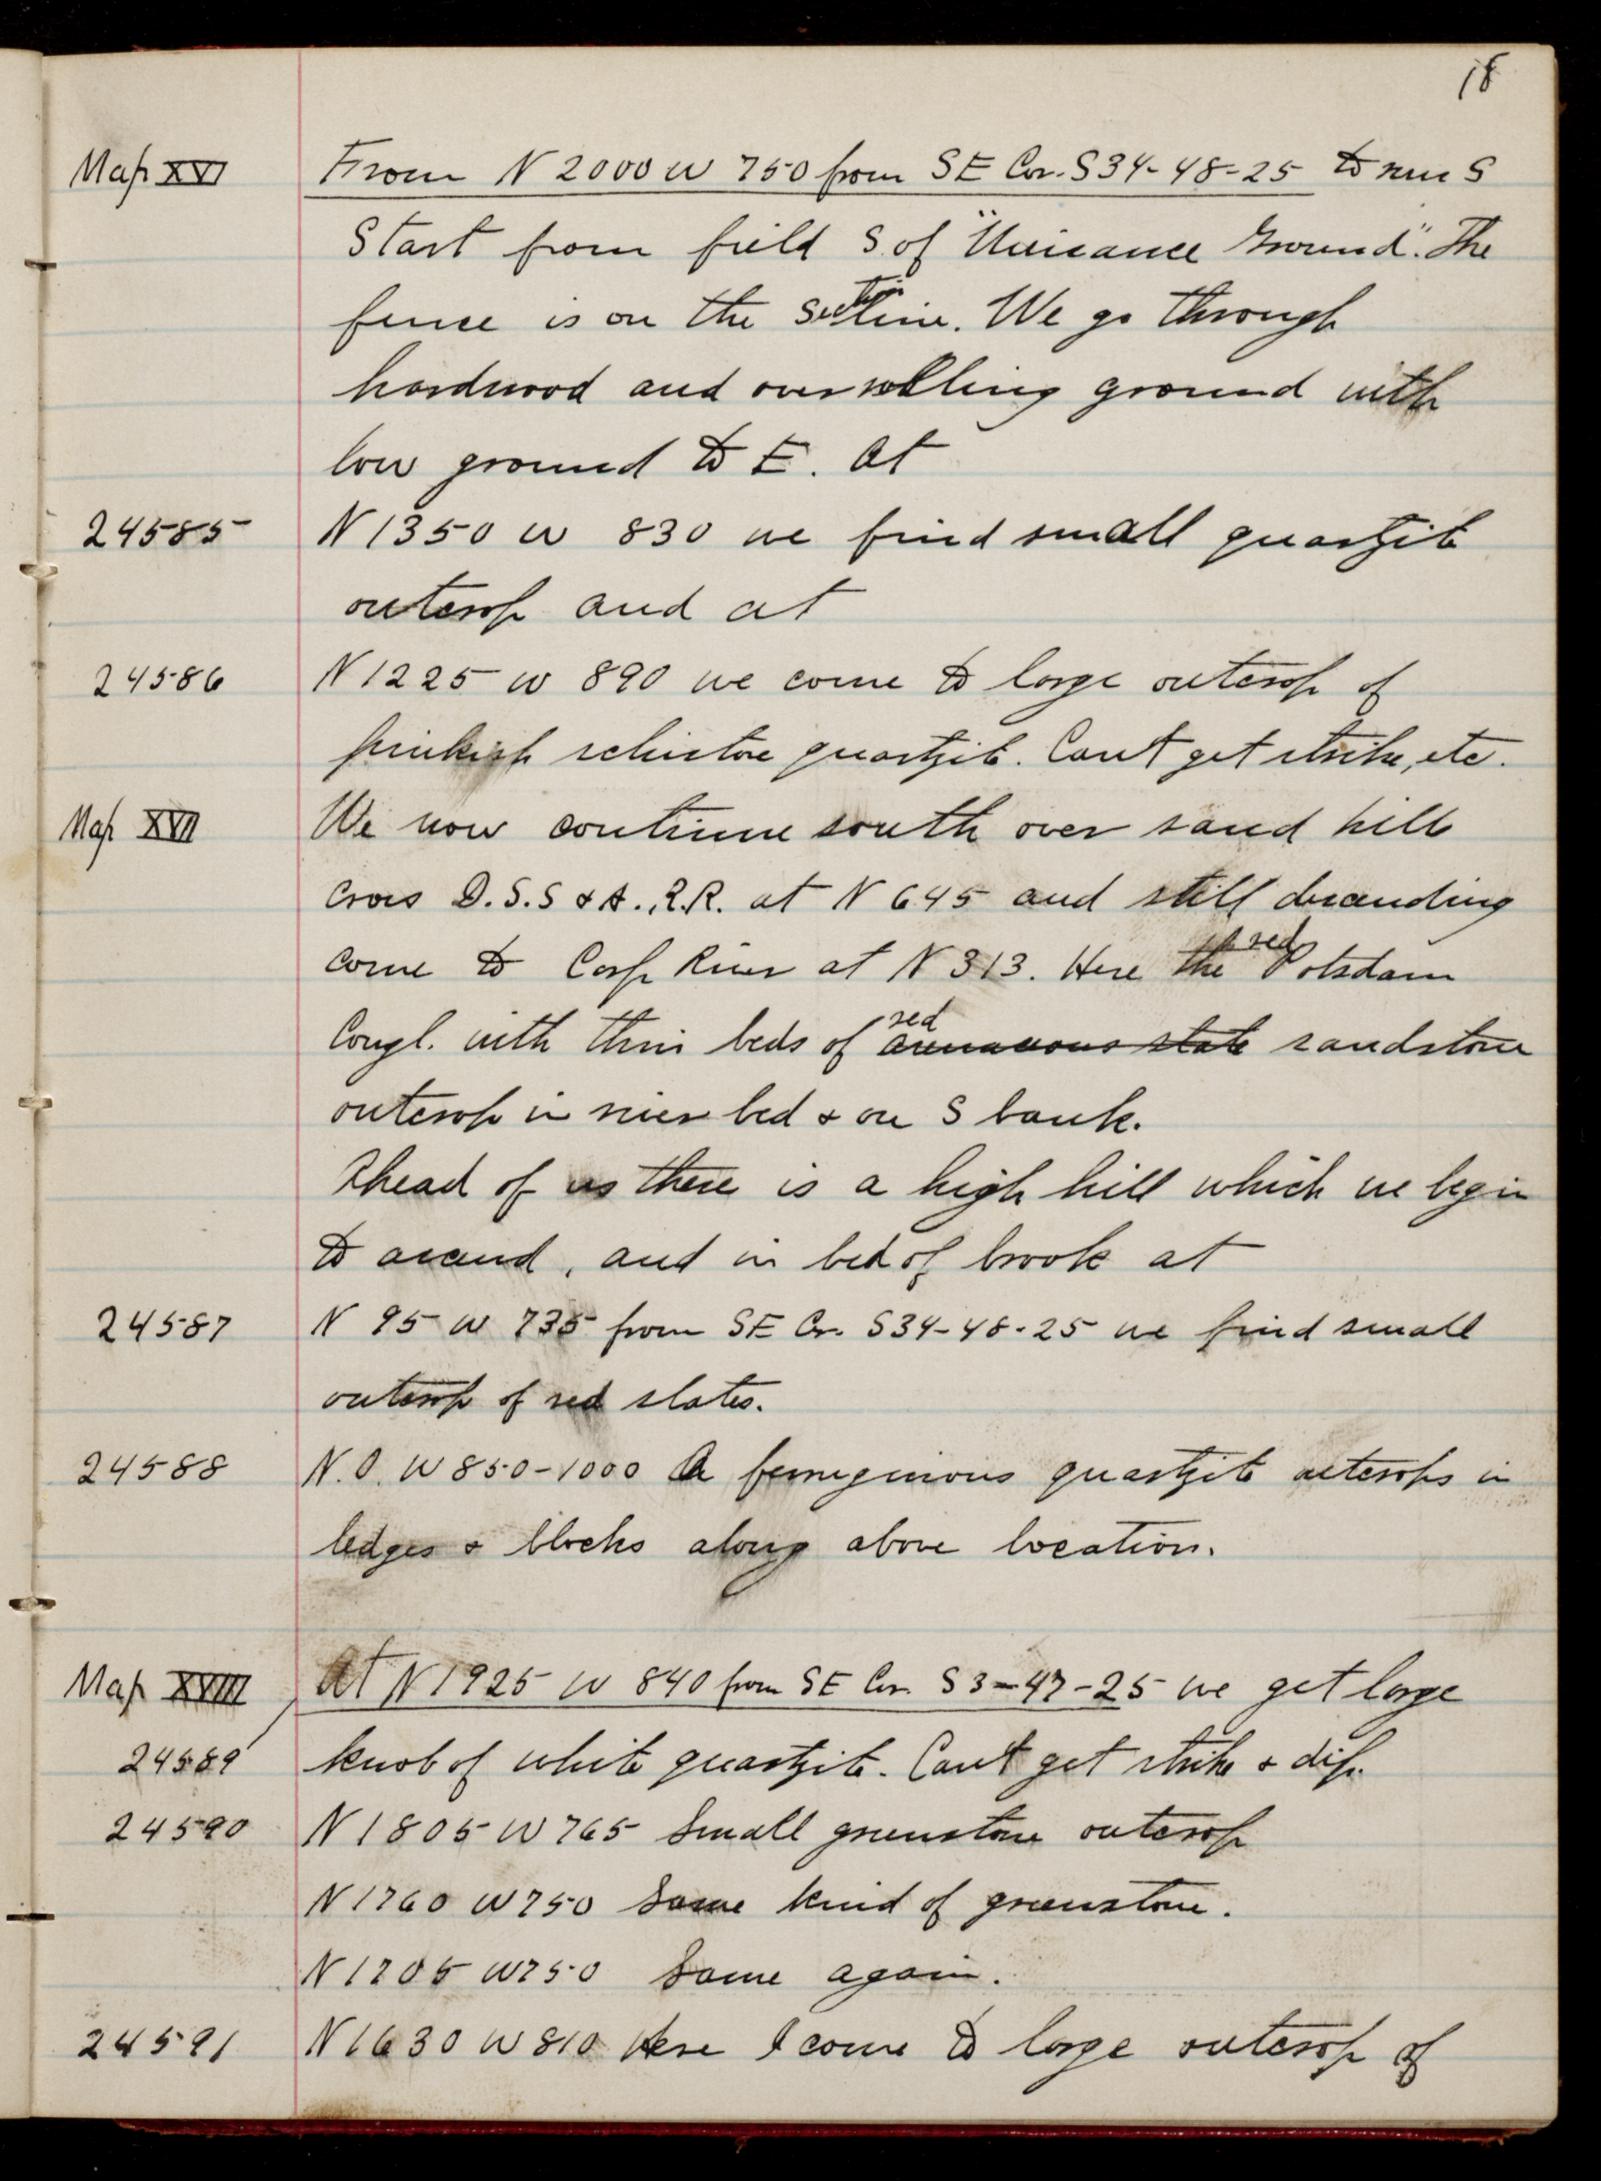 18
Map XVI From N 2000 W 750 from SE Cor. S34-48-25 to run S
Start from field S. of "Nuisance Ground". The
fence is on the section line. We go through
hardwood and over rolling ground with
low ground to E. At
24585 N 1350 W 830 we find small quartzite
outcrop and at
24586 N 1225 W 890 we come to large outcrop of
pinkish schistose quartzite. Can't get strike, etc.
Map XVII We now continue south over sand hills
cross D.S.S & A. R.R. at N 645 and still descending
come to Carp River at N 313. Here the red Potsdam
Congl. with thin beds of red arenaceous slate sandstone
outcrop in river bed & on S bank.
Ahead of us there is a high hill which we begin
to ascend, and in bed of brook at
24587 N 95 W 735 from SE Cor. S34-48-25 we find small
outcrop of red slates.
24588 N.O. W 850-1000 A ferruginous quartzite outcrops in
ledges & blocks along above location.
Map XVIII At N 1925 W 840 from SE Cor. S 3-47-25 we get large
24589 knob of white quartzite. Can't get strike & dip.
24590 N 1805 W 765 Small greenstone outcrop
N 1760 W 750 Same kind of greenstone.
N 1705 W 750 Same again.
24591 N 1630 W 810 Here I come to large outcrop of